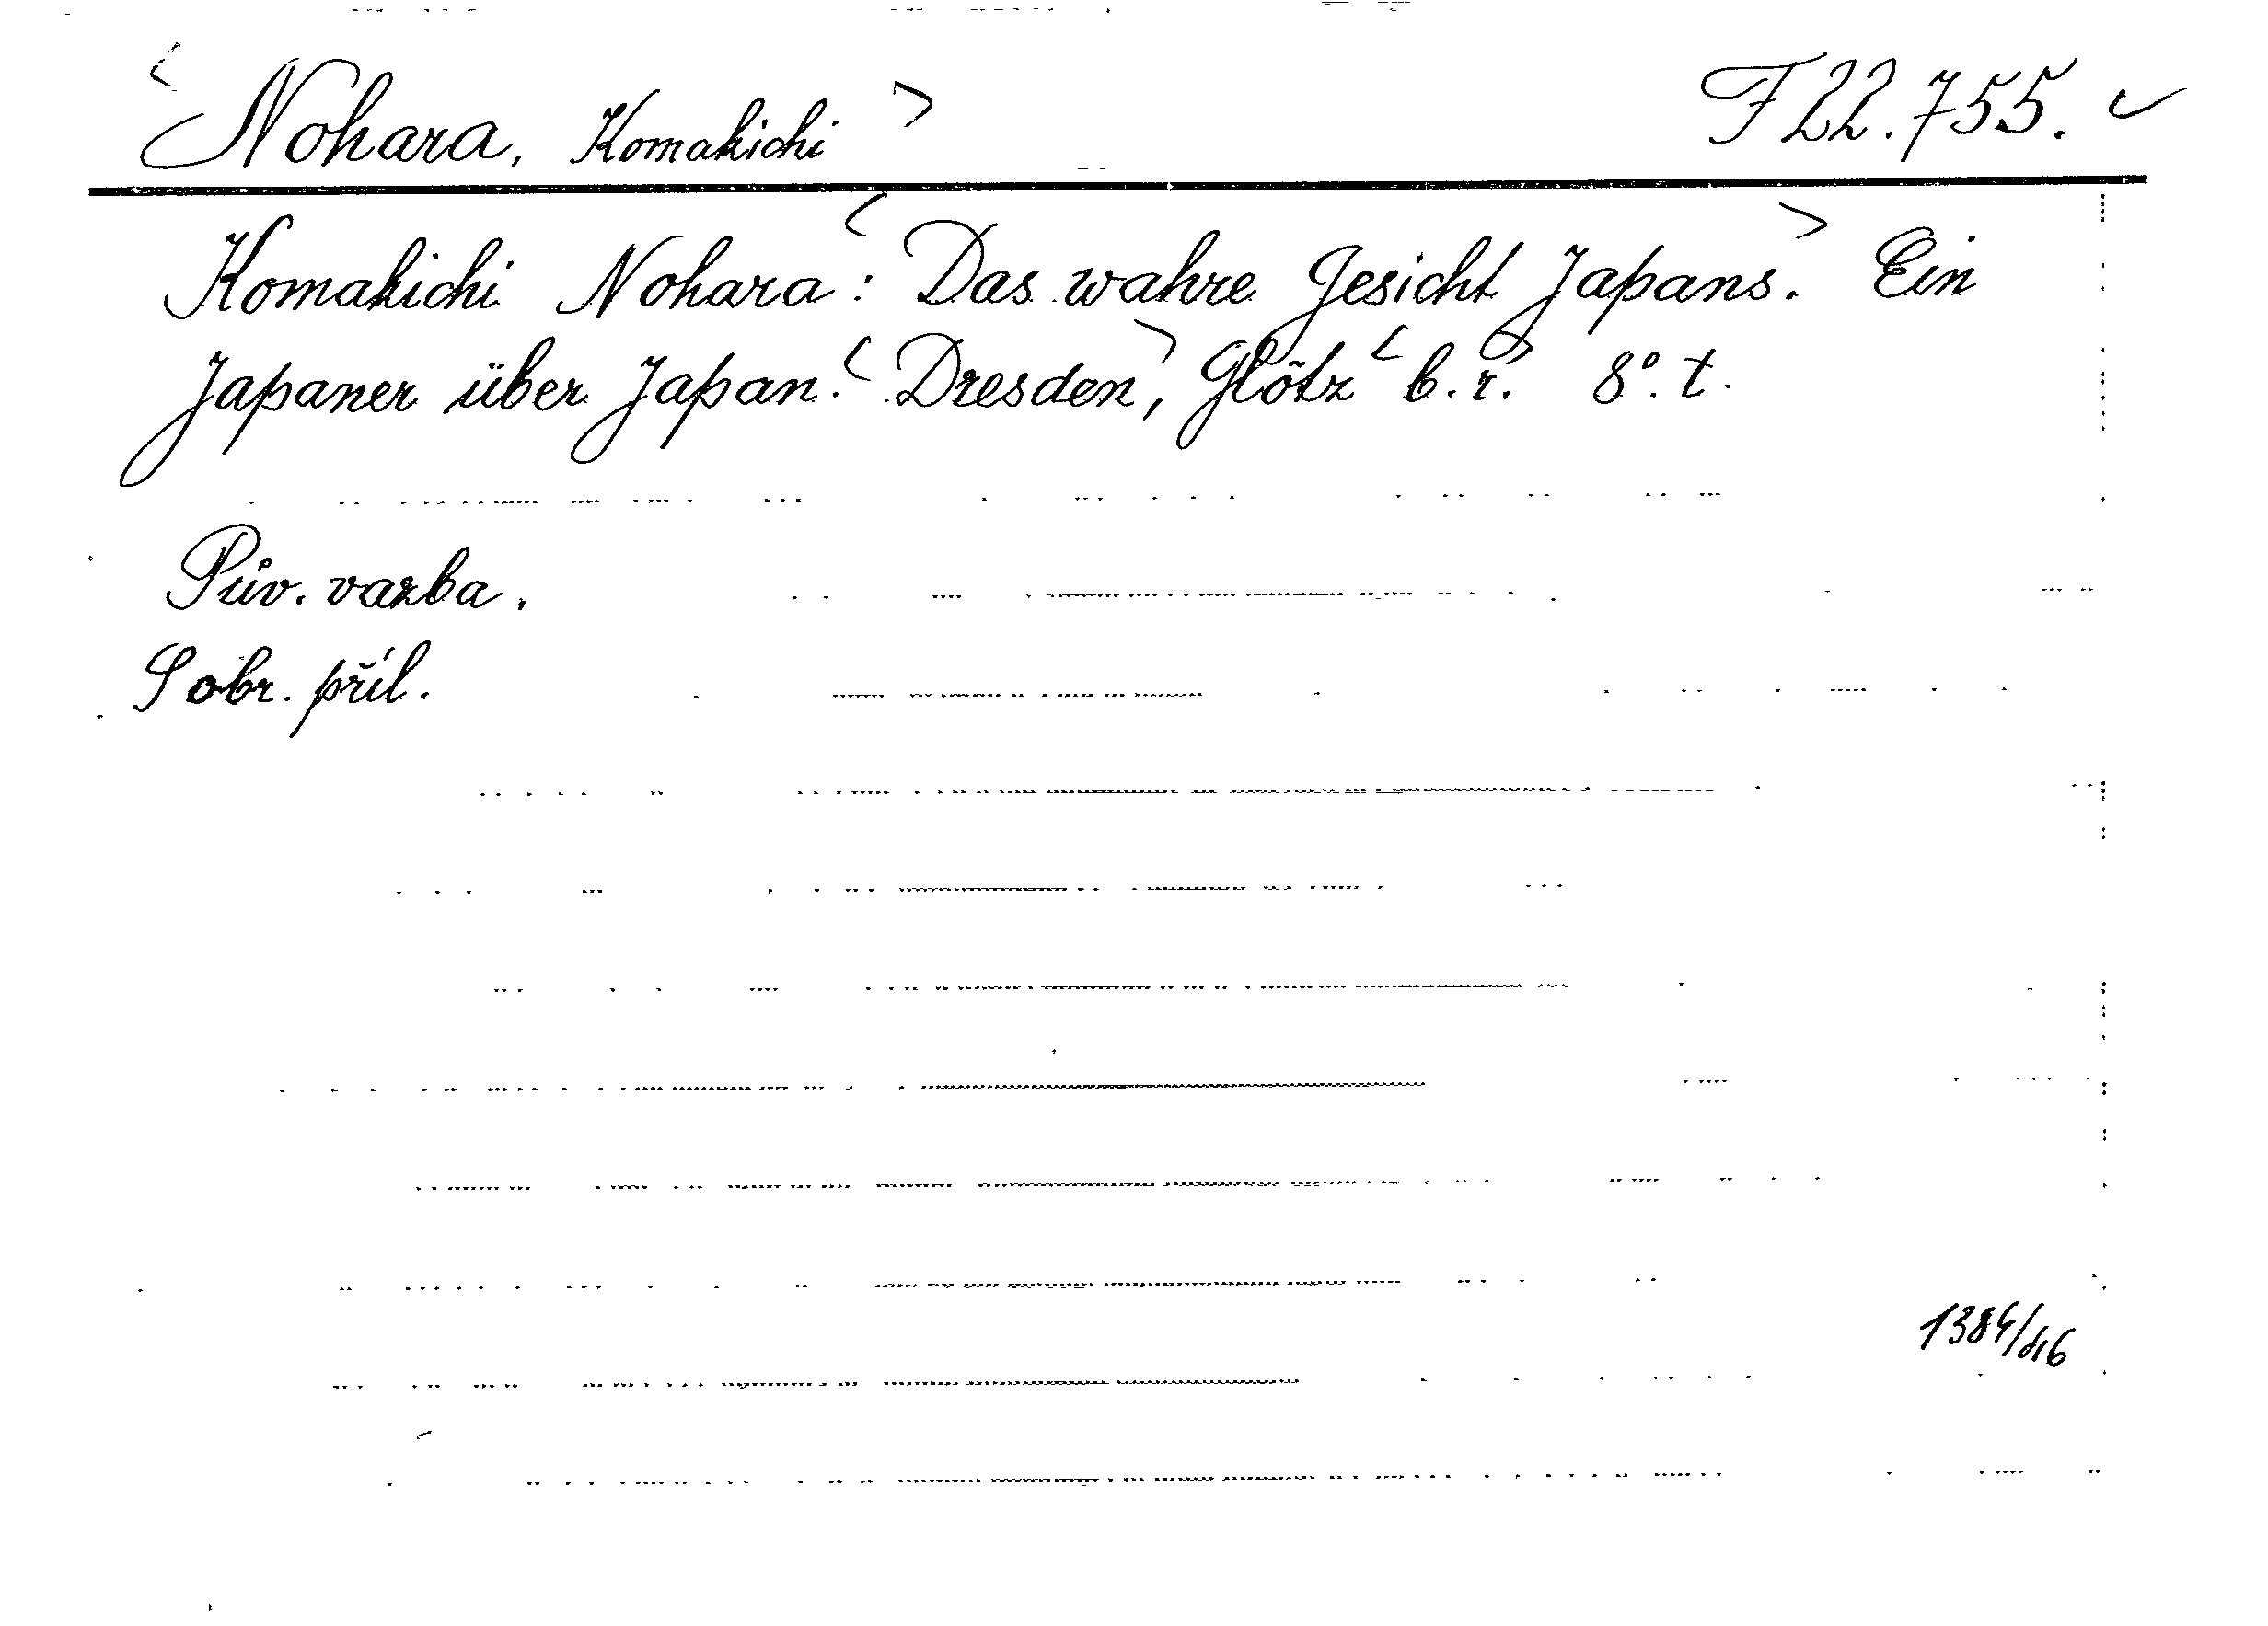 <Nohara, Komakichi> F 22.755. ✓
Komakichi Nohara: <Das wahre Gesicht Japans.> Ein
Japaner über Japan. <Dresden>, Glötz <b.r.> 8°. t.
Pův. vazba.
S obr. příl.
1384/46